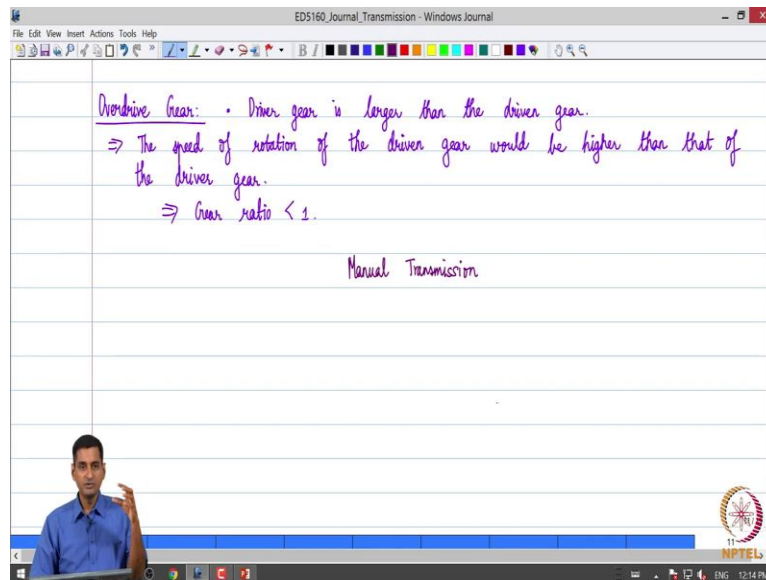 ED5160_Journal_Transmission - Windows Journal
File Edit View Insert Actions Tools Help
Overdrive Gear: • Driver gear is larger than the driven gear.
⇒ The speed of rotation of the driven gear would be higher than that of
the driver gear.
⇒ Gear ratio < 1.
Manual Transmission
11
NPTEL
ENG 12:14 PM